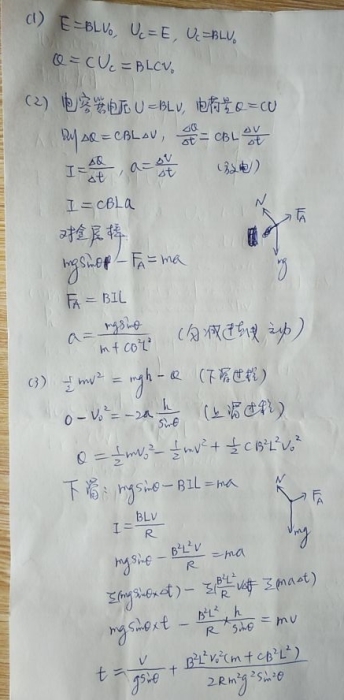 (1) E=BLV₀, U_C=E, U_C=BLV₀
Q=CU_C=BLCV₀
(2) 电容器电压U=BLV, 电荷量Q=CU
则 ΔQ=CBLΔV, ΔQ/Δt=CBL ΔV/Δt
I=ΔQ/Δt, a=ΔV/Δt (放电)
I=CBLa
对金属棒
mgsinθ-F_A=ma
F_A=BIL
a=mgsinθ/(m+CB²L²) (匀减速直线运动)
N
F_A
mg
(3) ½mv²=mgh-Q (下滑过程)
0-V₀²=-2a h/sinθ (上滑过程)
Q=½mV₀²-½mv²+½CB²L²V₀²
下滑: mgsinθ-BIL=ma
I=BLV/R
mgsinθ-B²L²V/R=ma
Σ(mgsinθ×Δt)-Σ B²L²/R VΔt=Σ(maΔt)
mgsinθ×t-B²L²/R×h/sinθ=mv
t=v/gsinθ+B²L²V₀²(m+CB²L²)/2Rm²g²sin²θ
N
F_A
mg